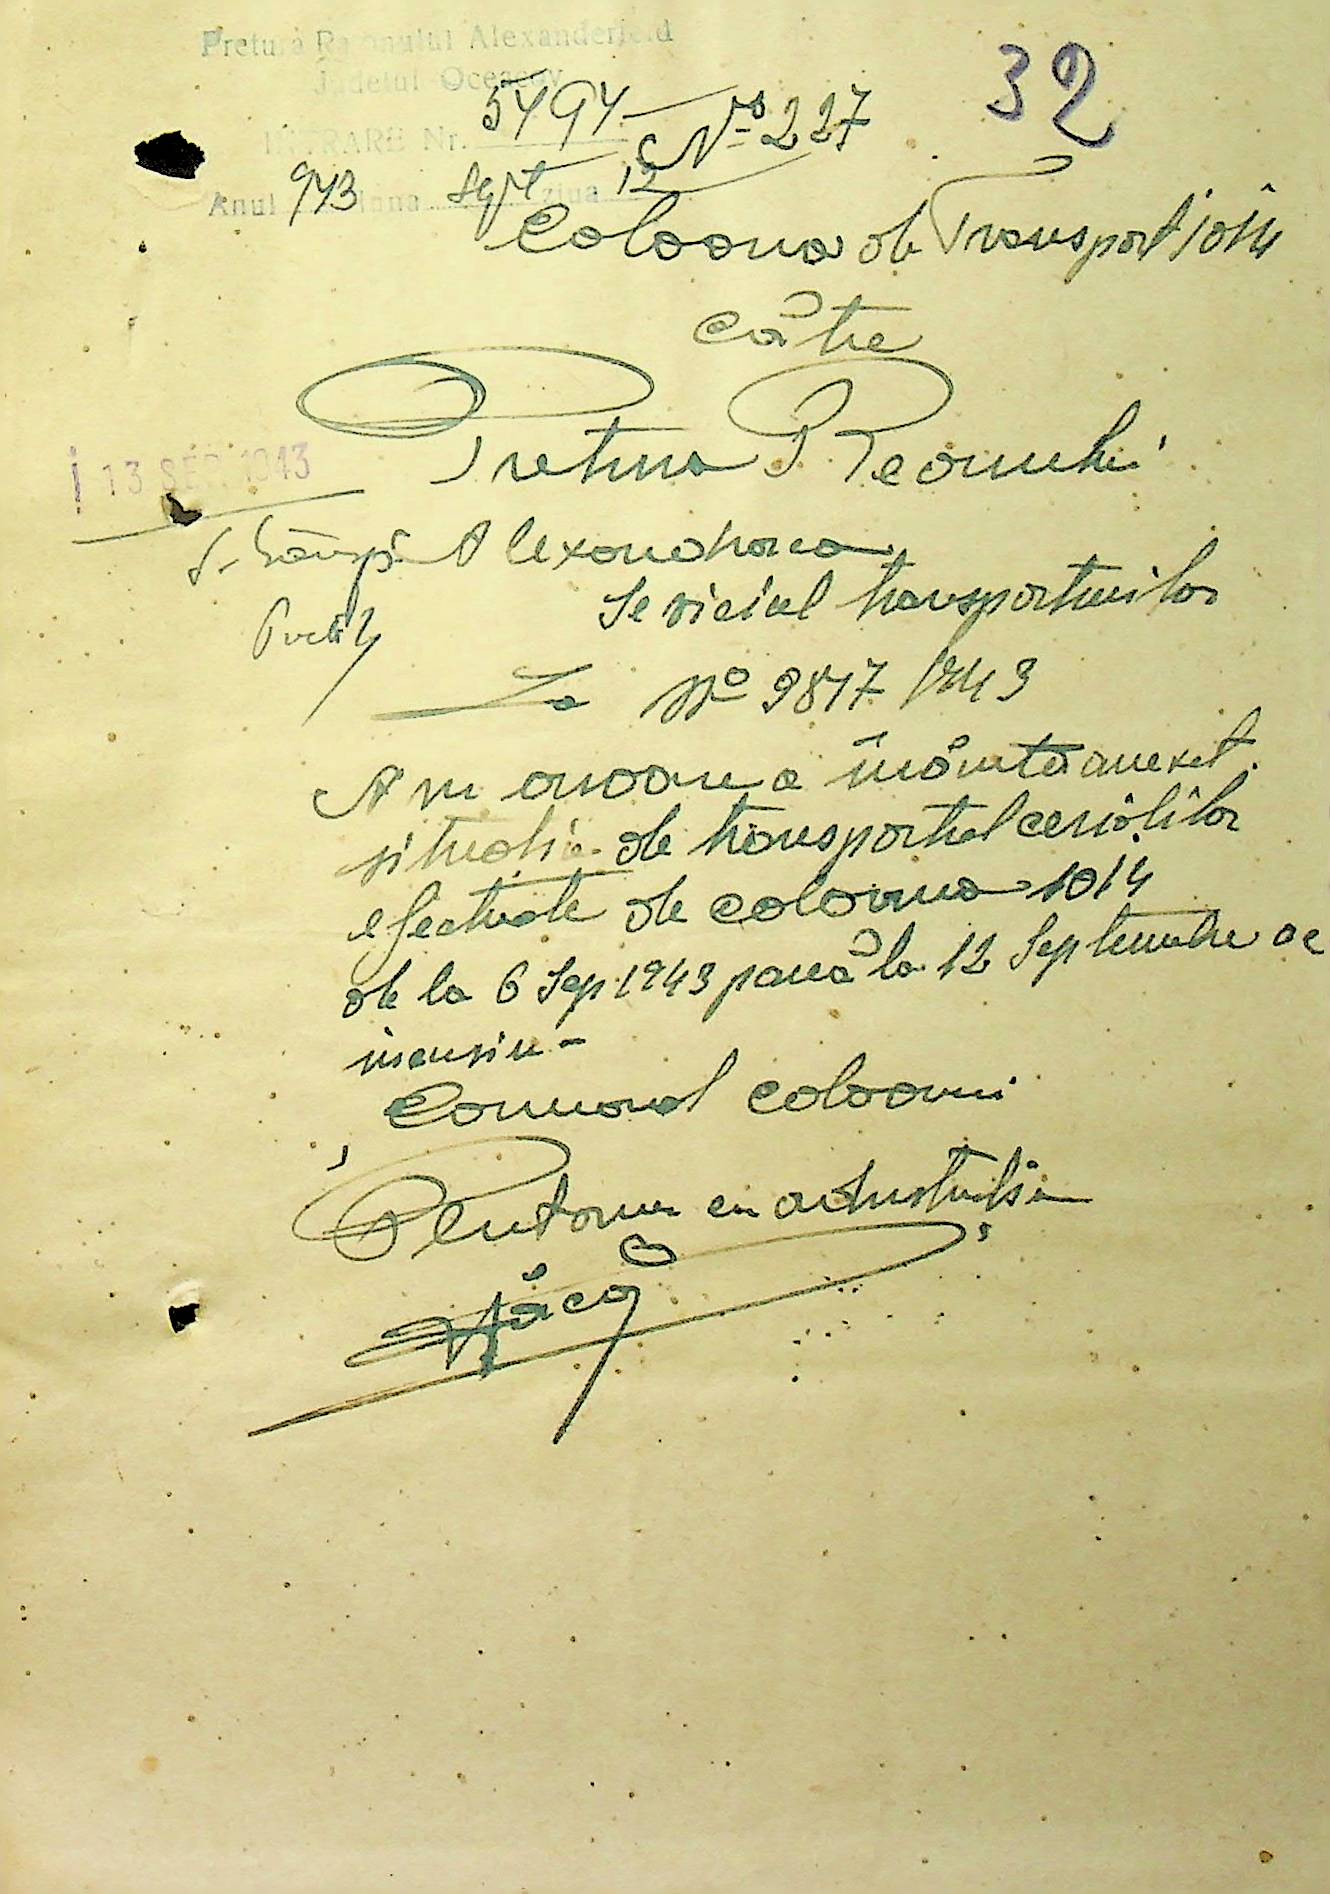 Pretura Raionului Alexanderfeld
Judetul Oceacov
32
INTRARE Nr. 5494
No 227
Anul 943 Luna Sept ziua 12
Coloana de Transport 1014
Către
Pretura Raionului
13 SEP. 1943
Alexandrovca
Serviciul transporturilor
La No 9847/943
Am onoare a înainta anexat
situatia de transportul cerialilor
efectuate de coloana 1014
de la 6 Sep 1943 pană la 12 Septembrie ac
inclusiv -
Comand coloanei
Plutonier